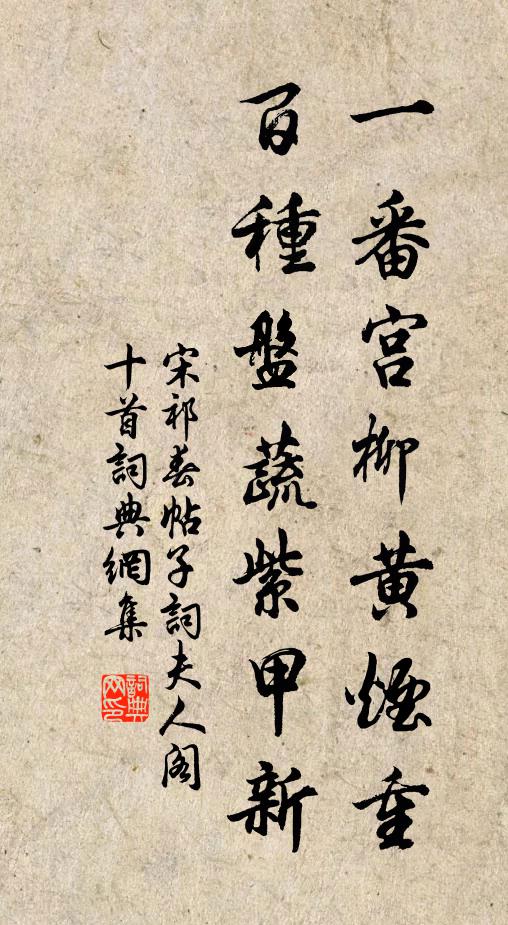 一番宮柳黃煙重
百種盤蔬紫甲新
宋祁春帖子詞夫人閣
十首詞典網集
詞典網印